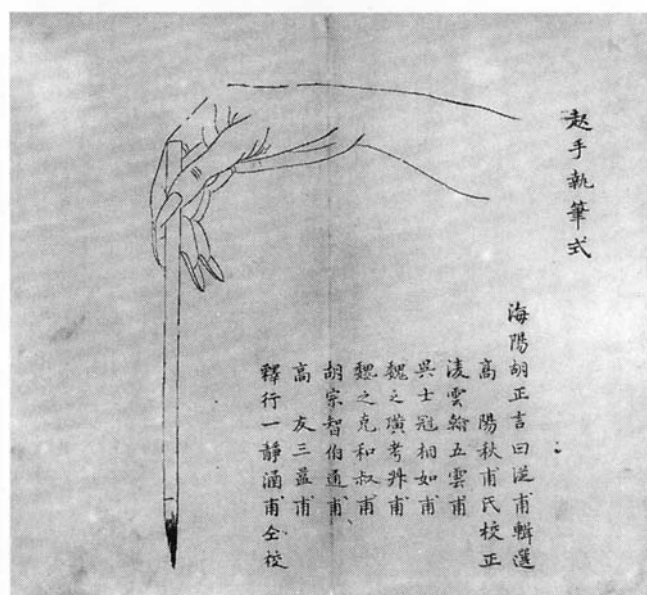 起手執筆式
海陽胡正言曰從甫輯選
高陽秋甫氏校正
凌雲翰五雲甫
吳士冠相如甫
魏之璜考甫
魏之克和叔甫
胡宗智伯通甫
高友三益甫
釋行一靜涵甫仝校